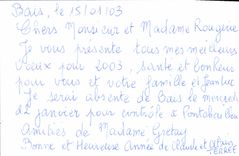 Bais, le 15/01/03
Chers Monsieur et Madame Rougine
Je vous présente tous mes meilleurs
vœux pour 2003, santé et bonheur
pour vous et votre famille et Jeanluc
Je serai absente de Bais le mercredi
22 janvier pour contrôle à Pontchaillou
Amitiés de Madame
Bonne et Heureuse Année